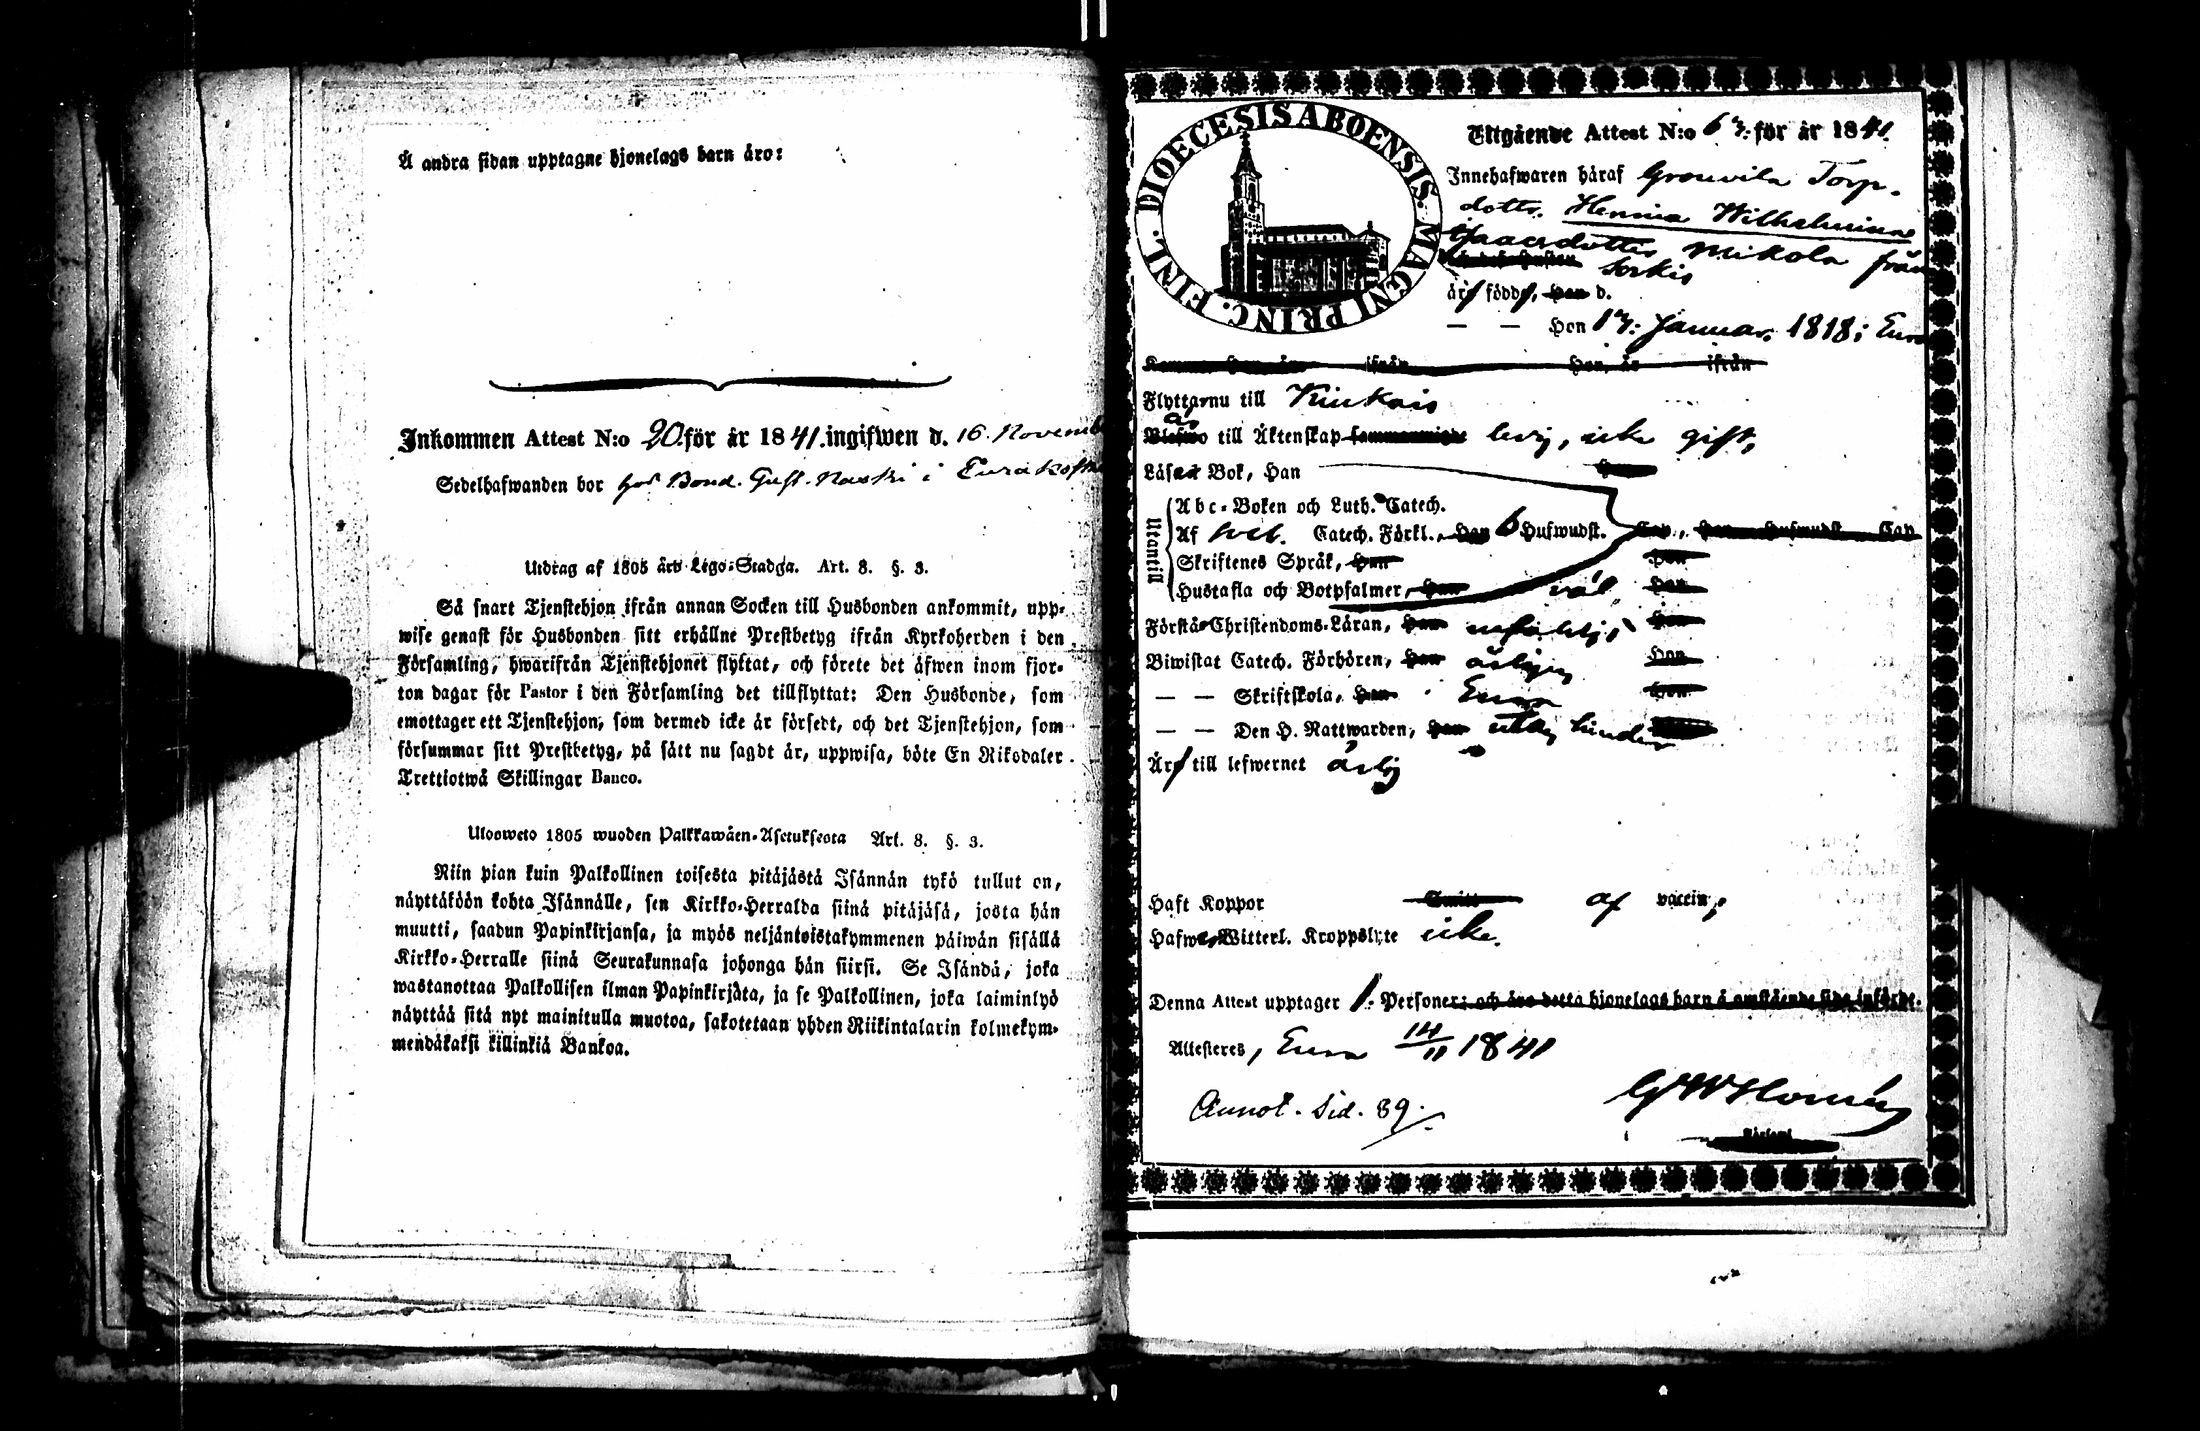 Å andra sidan upptagne hjonelags barn äro:
Inkommen Attest N:o 20. för år 1841. ingifwen d. 16. Novemb
Sedelhafwanden bor hos Bond. Gust. Naski i Eurakosk
Utdrag af 1805 års Lego-Stadga. Art. 8. §. 3.
Så snart Tjenstehjon ifrån annan Socken till Husbonden ankommit, upp-
wise genast för Husbonden sitt erhållne Prestbetyg ifrån Kyrkoherden i den
Församling, hwarifrån Tjenstehjonet flyttat, och förete det äfwen inom fjor-
ton dagar för Pastor i den Församling det tillflyttat: Den Husbonde, som
emottager ett Tjenstehjon, som dermed icke är försedt, och det Tjenstehjon, som
försummar sitt Prestbetyg, på sätt nu sagdt är, uppwisa, böte En Riksdaler
Trettiotwå Skillingar Banco.
Ulosweto 1805 wuoden Palkkawäen-Asetuksesta Art. 8. §. 3.
Niin pian kuin Palkollinen toisesta pitäjästä Isännän tykö tullut on,
näyttäköön kohta Isännälle, sen Kirkko-Herralda siinä pitäjäsä, josta hän
muutti, saadun Papinkirjansa, ja myös neljäntoistakymmenen päiwän sisällä
Kirkko-Herralle siinä Seurakunnasa johonga hän siirsi. Se Isändä, joka
wastanottaa Palkollisen ilman Papinkirjata, ja se Palkollinen, joka laiminlyö
näyttää sitä nyt mainitulla muotoa, sakotetaan yhden Riikintalarin kolmekym-
mendäkaksi killinkiä Bankoa.
DIOECESIS ABOENSIS. MAGNI PRINC. FINL.
Utgående Attest N:o 67: för år 1841.
Innehafwaren häraf Grouvila Torp-
dottr. Henrica Wilhelmina
Isaacsdotter Mikola från
Sorkis
är född, Han d.
— — Hon 17: Januar. 1818; Eura
Kommer Han år ifrån Hon, år ifrån
Flyttar nu till Kiukais
är till Äktenskap ledig, icke gift,
Läser Bok, Han
Utantill
Abc-Boken och Luth. Catech.
Af Catech. Förkl., Han 6 Hufwudst. Cap., Hon Hufwudst. Cap
Skriftenes Språk, Han Hon
Hustafla och Botpsalmer, Han väl Hon
Förstå Christendoms-Läran, Han Hon
Biwistat Catech. Förhören, Han årligen Hon
— — Skriftskola, Han Eura Hon
— — Den H. Nattwarden, Han hinder
Är till lefwernet ärlig
Haft Koppor Smitt af vaccin,
Hafwer Witterl. Kroppslyte icke.
Denna Attest upptager 1. Personer; och äro detta hjonelags barn å omstående sida införde.
Attesteres, Eura 14/11 1841
Annot. Sid. 89.